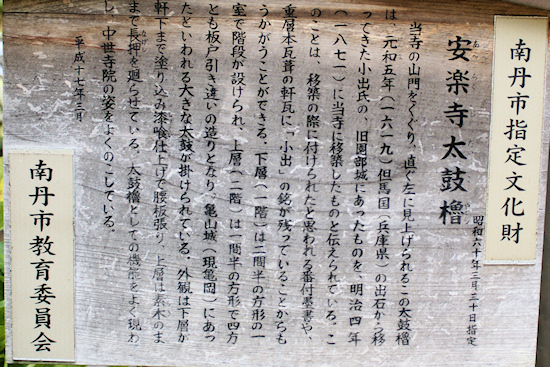 南丹市指定文化財
昭和六十年三月三十日指定
安楽寺太鼓櫓
当寺の山門をくぐり、直ぐ左に見上げられるこの太鼓櫓
は、元和五年(一六一九)但馬国(兵庫県)の出石から移
ってきた小出氏の、旧園部城にあったものを、明治四年
(一八七一)に当寺に移築したものと伝えられている。こ
のことは、移築の際に付けられたと思われる番付墨書や、
重層本瓦葺の軒瓦に「小出」の銘が残っていることからも
うかがうことができる。下層(一階)は二間半の方形の一
室で階段が設けられ、上層(二階)は一間半の方形で四方
とも板戸引き違いの造りとなり、亀山城(現亀岡)にあっ
たといわれる大きな太鼓が掛けられている。外観は下層が
軒下まで塗り込み漆喰仕上げで腰板張り、上層は素木のま
まで長押を廻らせている。太鼓櫓としての機能をよく現わ
し、中世寺院の姿をよくのこしている。
平成十七年三月
南丹市教育委員会